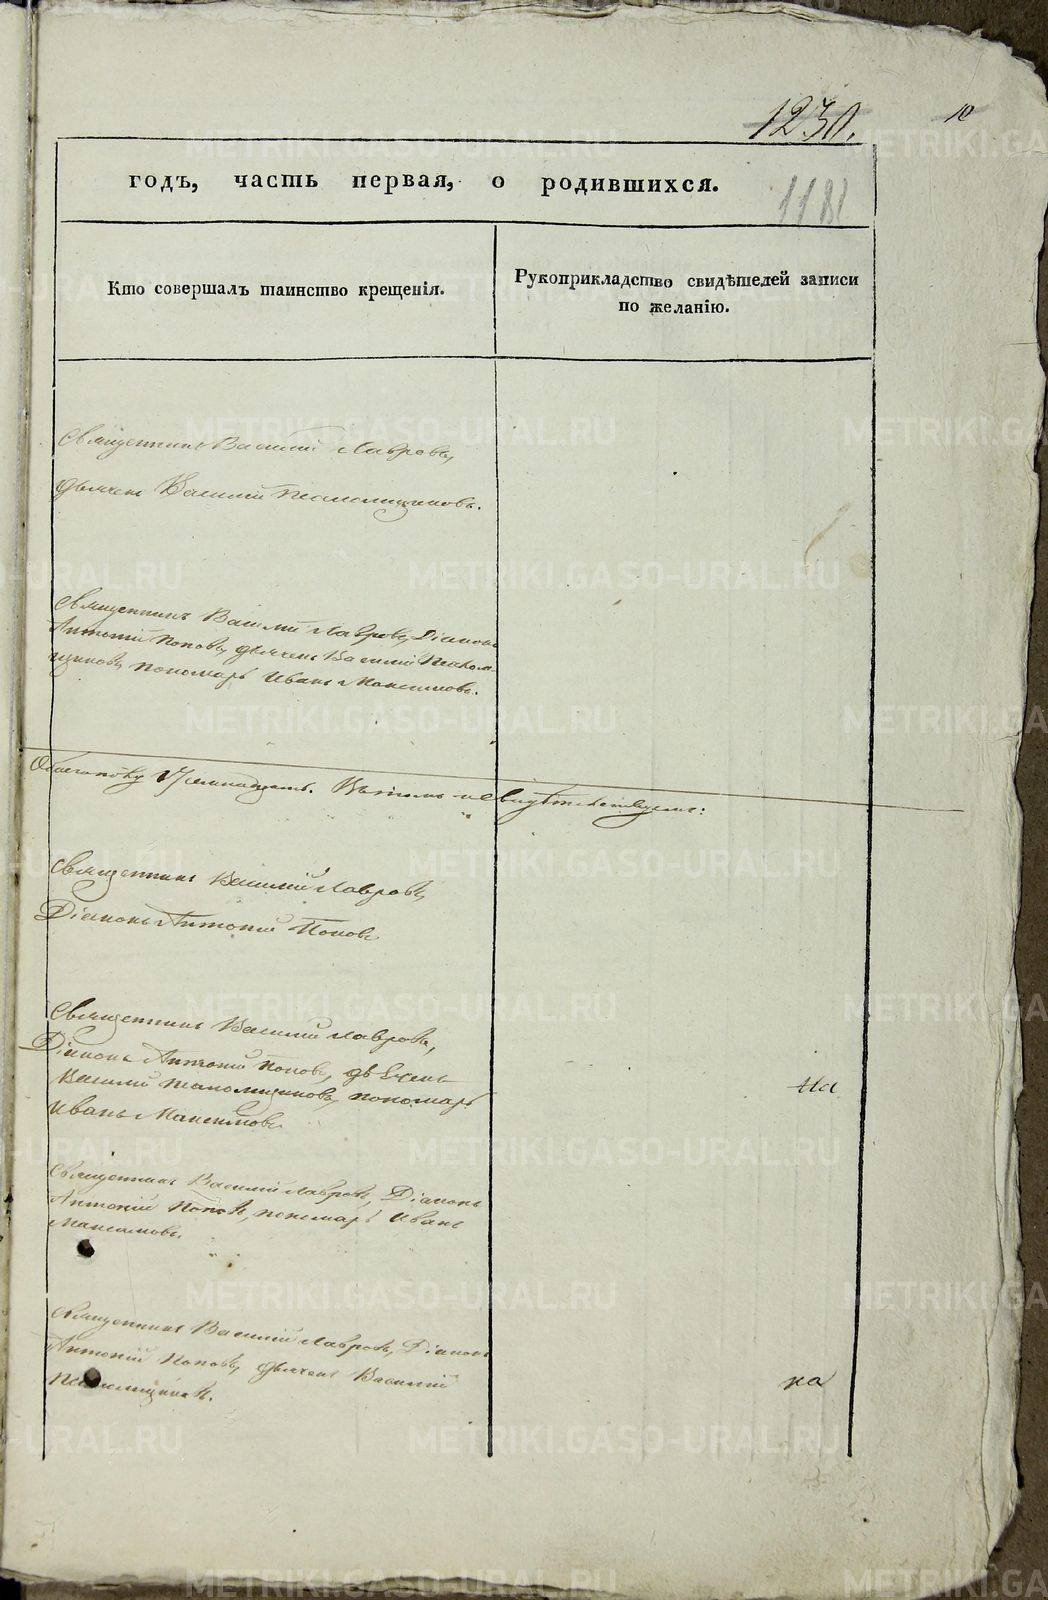 1230.
10
годъ, часть первая, о родившихся.
1181
Кто совершалъ таинство крещенія.
Рукоприкладство свидѣтелей записи
по желанію.
Священникъ Василій Лавровъ,
дьячекъ Василій Пономъ.
Священникъ Василій Лавровъ, Діаконъ
Антоній Поповъ, дьячекъ Василій
пономарь Иванъ Максимовъ.
Обоего полу
Священникъ Василій Лавровъ,
Діаконъ Антоній Поповъ
Священникъ Василій Лавровъ,
Діаконъ Антоній Поповъ, дьячекъ
Василій пономарь
Иванъ Максимовъ
На
Священникъ Василій Лавровъ, Діаконъ
Антоній Поповъ, пономарь Иванъ
Максимовъ.
Священникъ Василій Лавровъ, Діаконъ
Антоній Поповъ, дьячекъ Василій
на
METRIKI.GASO-URAL.RU